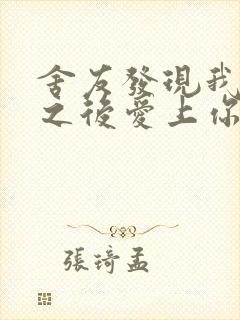 舍友發現我
之後愛上你
張琦孟